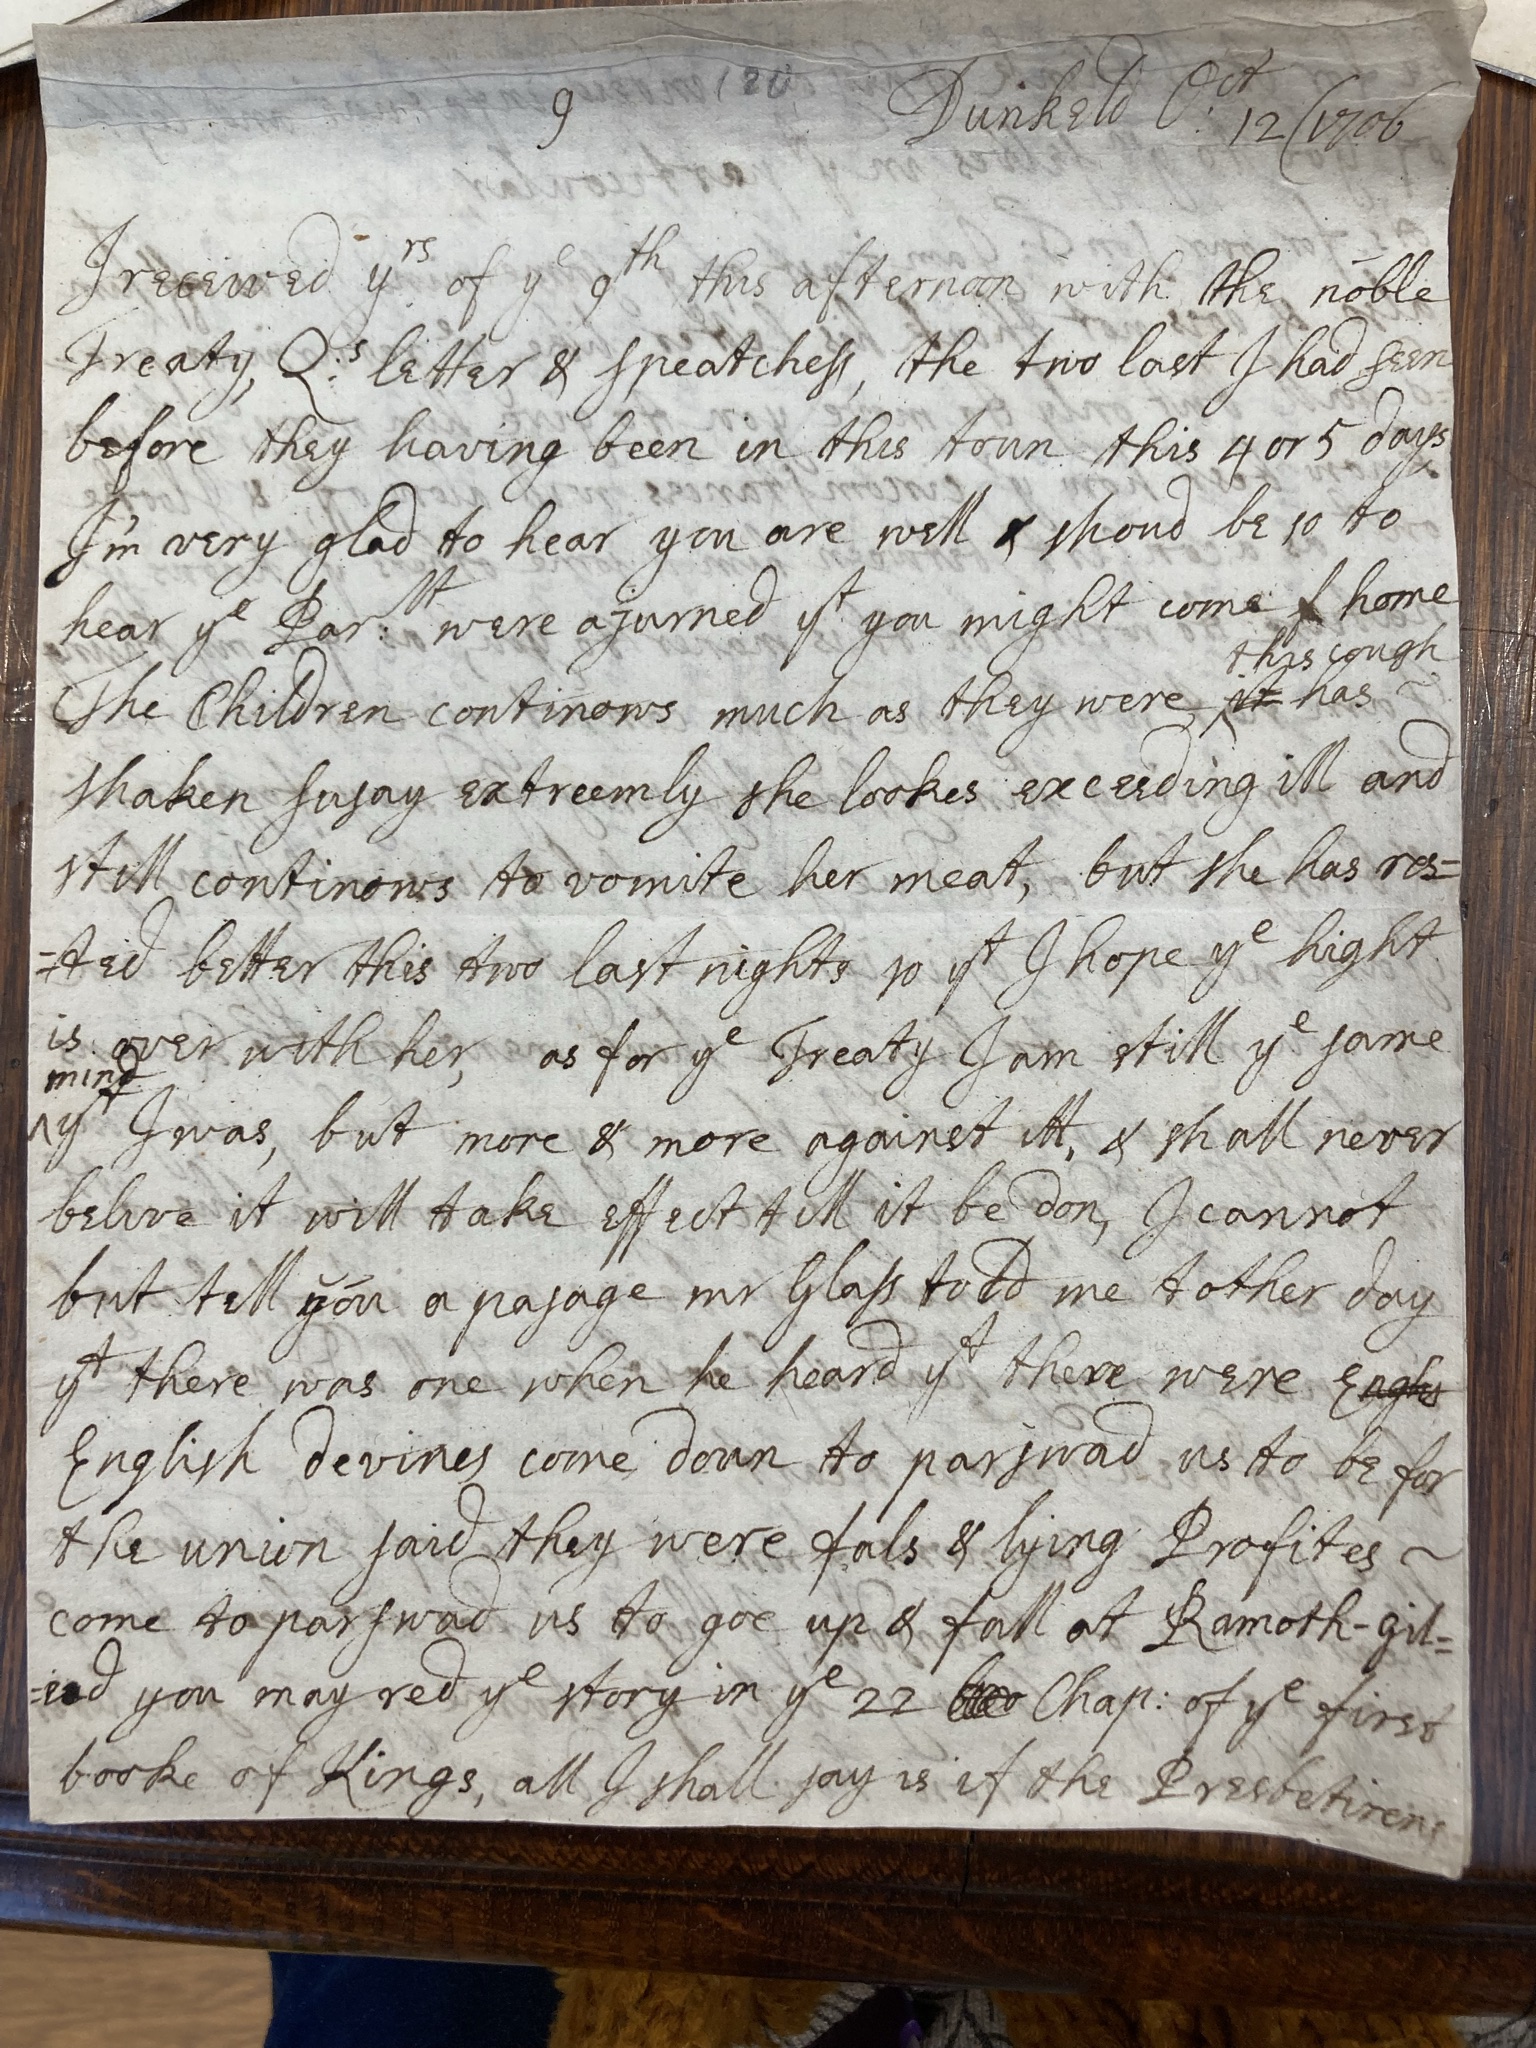 9 Dunkeld Oct: 12 1706
I received yrs of ye 9th this afternoon with the noble
Treaty, Q:s letter & speatchess, the two last I had seen
before they having been in this toun this 4 or 5 days
I'm very glad to hear you are well & shoud be so to
hear ye Par:tt were ajurned yt you might come home
this cough
The Children continows much as they were it has
shaken susay extreemly she lookes exceeding ill and
still continows to vomite her meat, but she has res=
=ted better this two last nights so yt I hope ye hight
is over with her, as for ye Treaty I am still ye same
mind
yt I was, but more & more against itt, & shall never
belive it will take effect till it be don, I cannot
but tell you a pasage mr Glass told me tother day
yt there was one when he heard yt there were Englis
English devines come doun to parswad us to be for
the union said they were fals & lying Profites
come to parswad us to goe up & fall at Ramoth-gil=
=ead you may red ye story in ye 22 Chap: of ye first
booke of Kings, all I shall say is if the Presbetirens